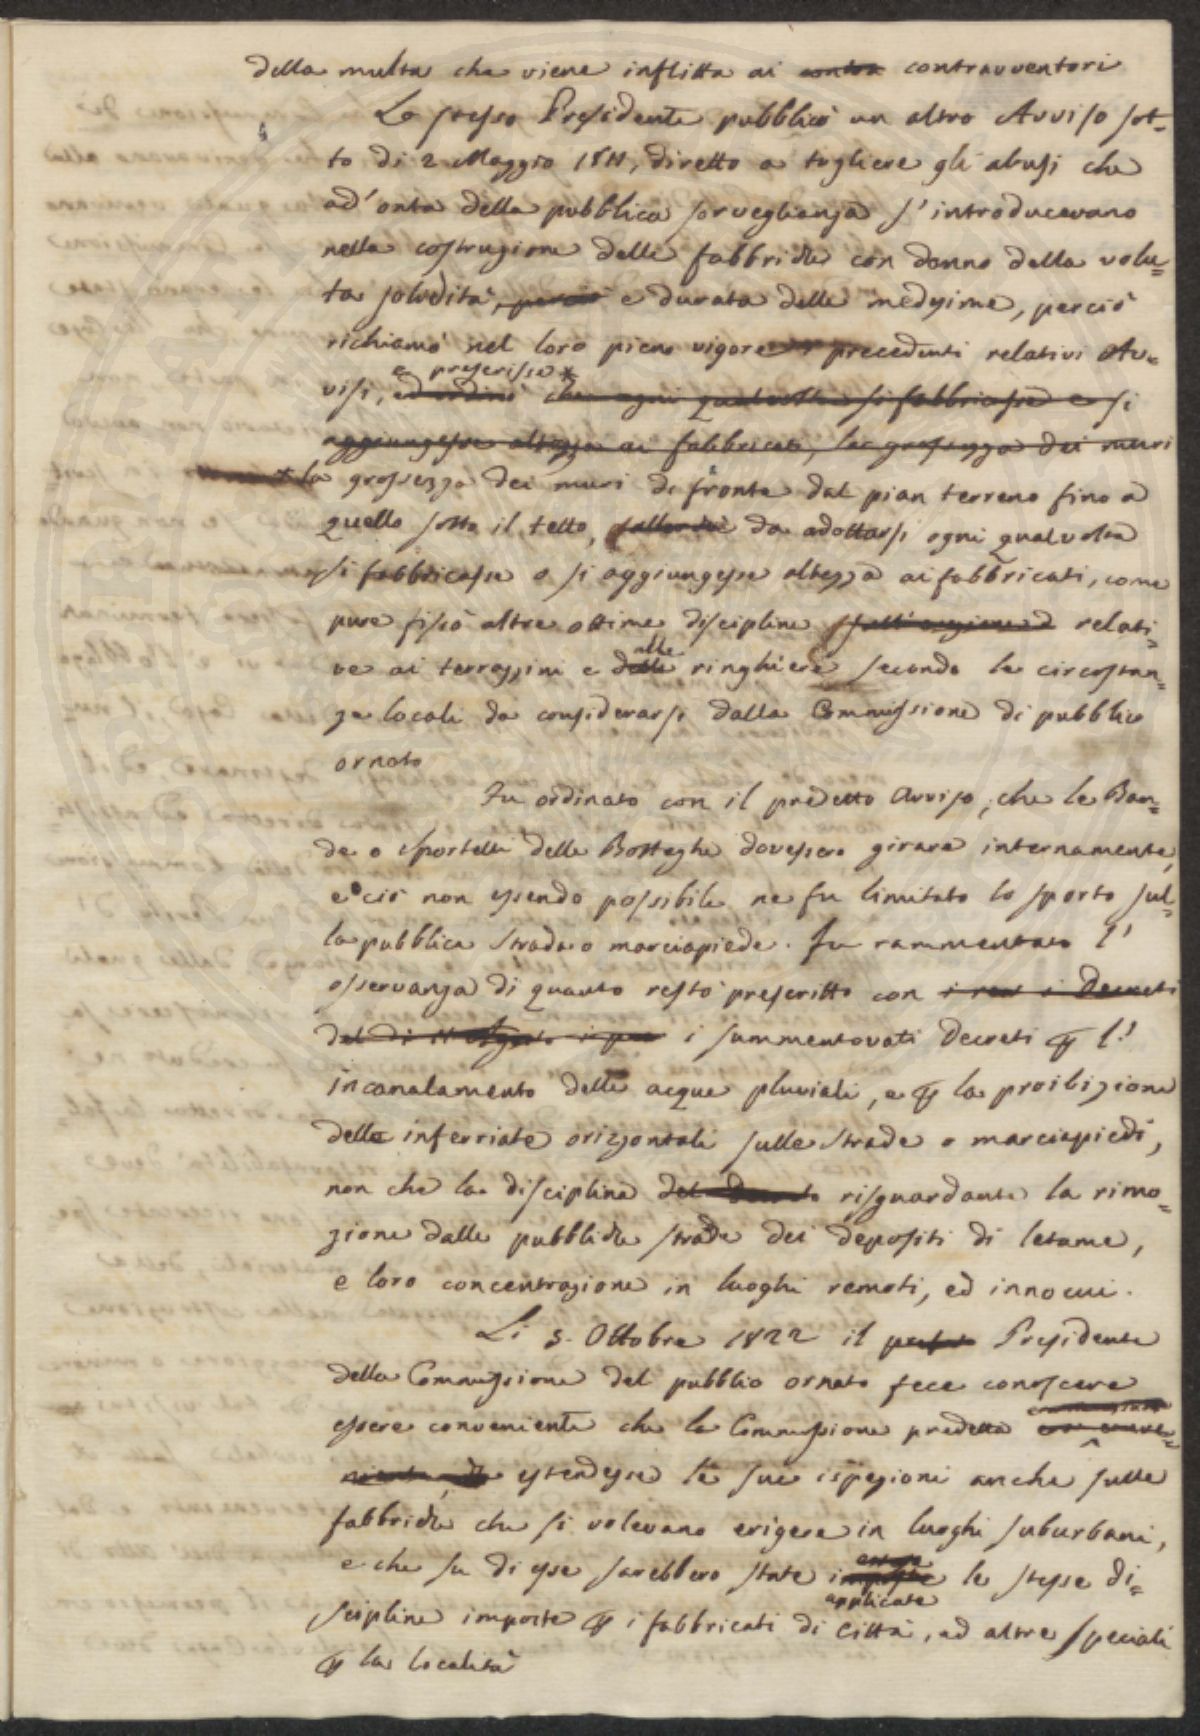 della multa che viene inflitta ai contra contravventori
Lo stesso Presidente pubblicò un altro Avviso sot=
to di 2 Maggio 1811, diretto a togliere gli abusi che
ad'onta della pubblica sorveglianza s'introducevano
nella costruzione delle fabbriche con danno della volu=
ta solidità, perciò e durata delle medesime, perciò
richiamò nel loro pieno vigore i precedenti relativi Av=
e prescrisse *
visi, ed ordinò che ogni qualvolta si fabbricasse e si
aggiungesse altezza ai fabbricati, la grossezza dei muri
* la grossezza dei muri di fronte dal pian terreno fino a
quello sotto il tetto, da adottarsi ogni qualvolta
si fabbricasse o si aggiungesse altezza ai fabbricati, come
pure fissò altre ottime discipline relati=
alle
ve ai terrazzini e delle ringhiere secondo le circostan=
ze locali da considerarsi dalla Commissione di pubblico
ornato
Fu ordinato con il predetto Avviso, che le Ban=
de o Sportelli delle Botteghe dovessero girare internamente,
e ciò non essendo possibile ne fu limitato lo sporto sul=
la pubblica strada o marciapiede. Fu rammentato l'
osservanza di quanto restò prescritto con i Decreti
del di i summentovati Decreti p l'
incanalamento delle acque pluviali, e p la proibizione
delle inferriate orizzontali sulle strade o marciapiedi,
non che la disciplina del risguardante la rimo=
zione dalle pubbliche strade dei depositi di letame,
e loro concentrazione in luoghi remoti, ed innocui.
Li 3. Ottobre 1822 il Presidente
della Commissione del pubblico ornato fece conoscere
essere conveniente che la Commissione predetta
estendesse le sue ispezioni anche sulle
fabbriche che si volevano erigere in luoghi suburbani,
e che su di esse sarebbero state imposte le stesse di=
applicate
scipline imposte p i fabbricati di Città, ed altre speciali
p la località